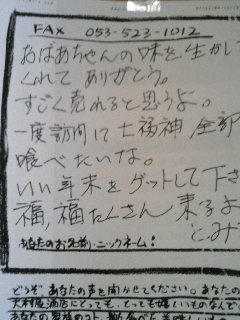 FAX 053-523-1012
おばあちゃんの味を生かし
くれて ありがとう。
すごく売れると思うよ。
一度訪問に七福神 全部
喰べたいな。
いい年末をゲットして下さ
福,福たくさん 来るよ
とみ
あなたのお名前・ニックネーム:
どうぞ、あなたの声を聞かせてください。あなたの
大村屋酒店にとっても、とっても嬉しいものなんで